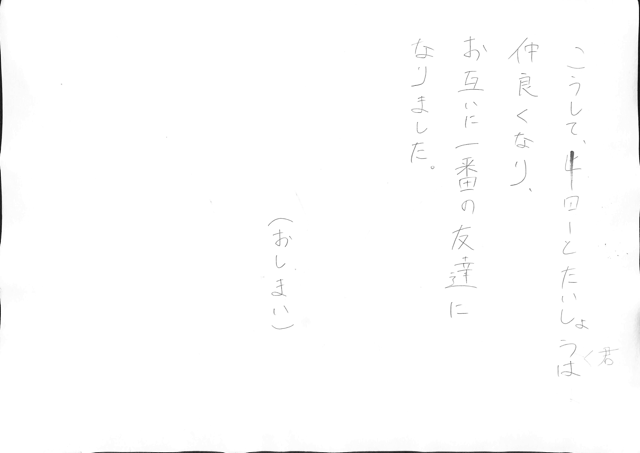 こうして、キローとたいしょうは
く君
仲良くなり、
お互いに一番の友達に
なりました。
(おしまい)